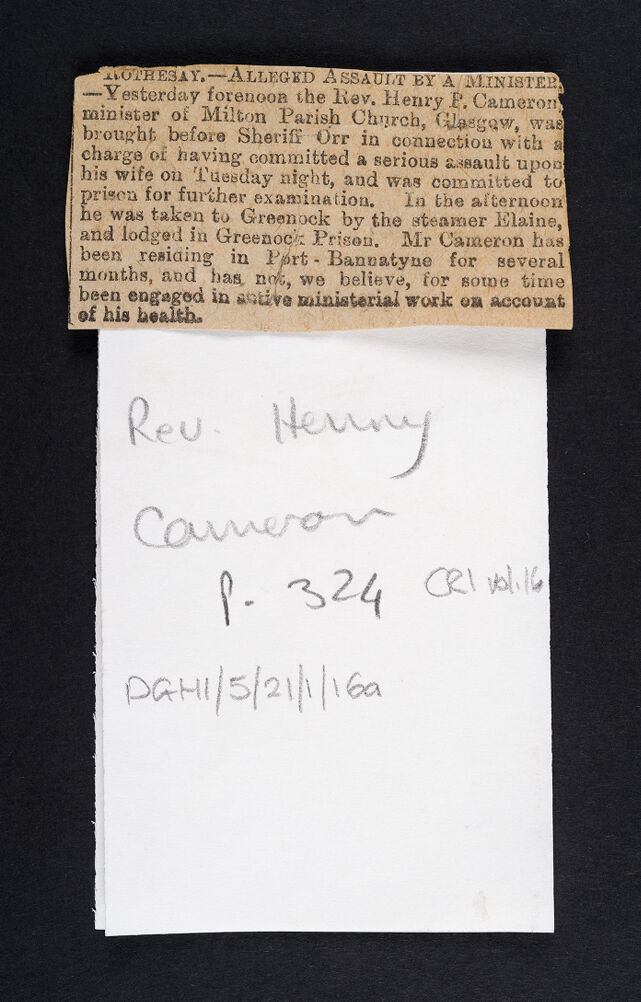 ROTHESAY.—ALLEGED ASSAULT BY A MINISTER.
—Yesterday forenoon the Rev. Henry P. Cameron,
minister of Milton Parish Church, Glasgow, was
brought before Sheriff Orr in connection with a
charge of having committed a serious assault upon
his wife on Tuesday night, and was committed to
prison for further examination. In the afternoon
he was taken to Greenock by the steamer Elaine,
and lodged in Greenock Prison. Mr Cameron has
been residing in Port-Bannatyne for several
months, and has not, we believe, for some time
been engaged in active ministerial work on account
of his health.
Rev. Henry
Cameron
p. 324 CRI vol.16
DGH1/5/21/1/16a